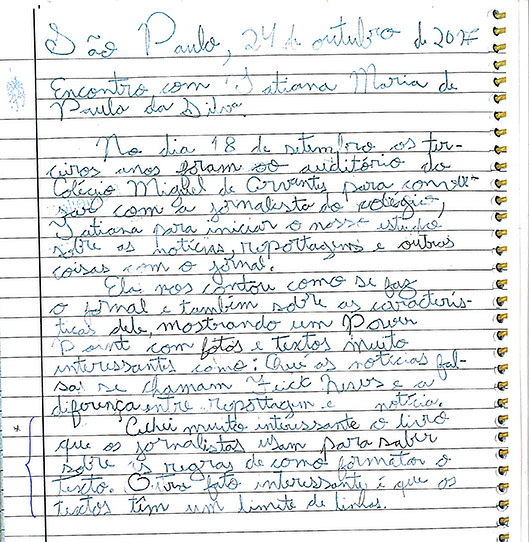 São Paulo, 24 de outubro de 2017
Encontro com Tatiana Maria de
Paula da Silva.
No dia 18 de setembro os ter-
ceiros anos foram ao auditório do
Colégio Miguel de Cervantes para conver-
sar com a jornalista do colégio,
Tatiana para iniciar o nosso estudo
sobre as notícias, reportagens e outras
coisas com o jornal.
Ela nos contou como se faz
o jornal e também sobre as caracterís-
ticas dele, mostrando um Power
Point com fotos e textos muito
interessantes como: Que as notícias fal-
sas se chamam Feick News e a
diferença entre reportagem e notícia.
* Achei muito interessante o livro
que os jornalistas usam para saber
sobre as regras de como formatar o
texto. Outro fato interessante é que os
textos têm um limite de linhas.